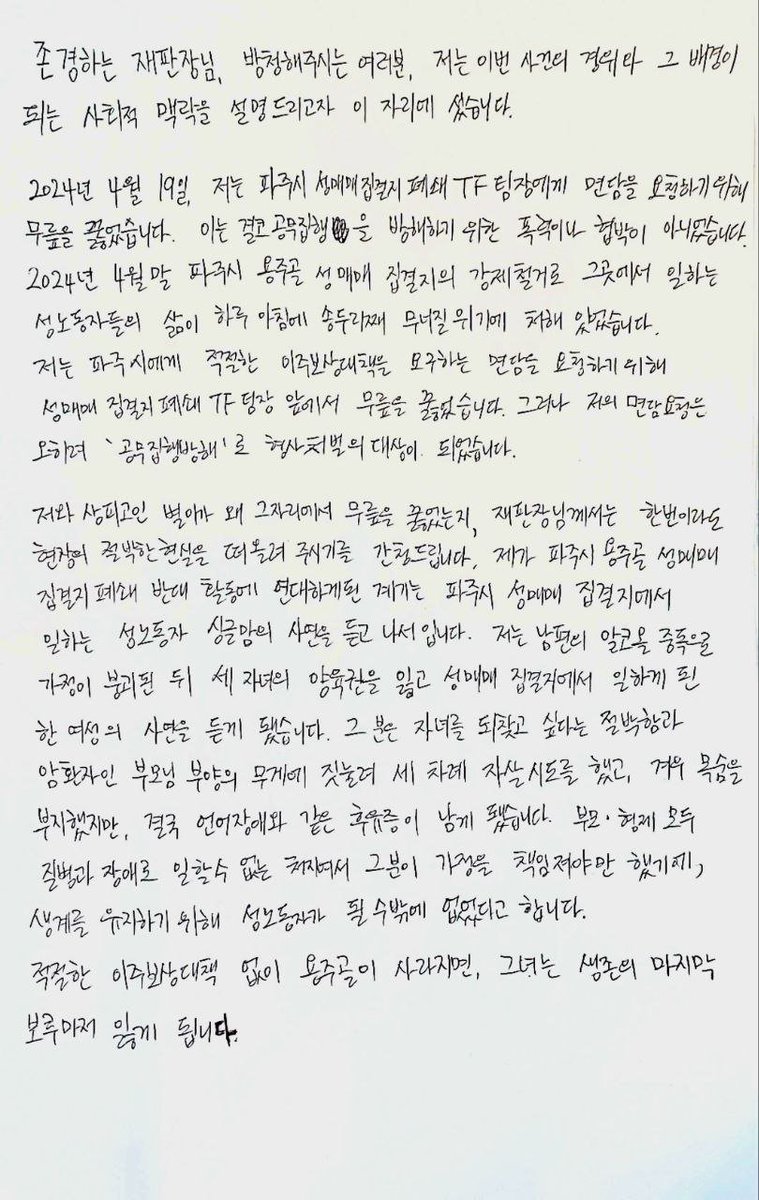 존경하는 재판장님, 방청해주시는 여러분, 저는 이번 사건의 경위와 그 배경이
되는 사회적 맥락을 설명드리고자 이 자리에 섰습니다.
2024년 4월 19일, 저는 파주시 성매매집결지 폐쇄 TF 팀장에게 면담을 요청하기 위해
무릎을 꿇었습니다. 이는 결코 공무집행을 방해하기 위한 폭력이나 협박이 아니었습니다.
2024년 4월말 파주시 용주골 성매매 집결지의 강제철거로 그곳에서 일하는
성노동자들의 삶이 하루 아침에 송두리째 무너질 위기에 처해 있었습니다.
저는 파주시에게 적절한 이주보상대책을 요구하는 면담을 요청하기 위해
성매매 집결지 폐쇄 TF 팀장 앞에서 무릎을 꿇었습니다. 그러나 저의 면담요청은
오히려 '공무집행방해'로 형사처벌의 대상이 되었습니다.
저와 상피고인 별이가 왜 그자리에서 무릎을 꿇었는지, 재판장님께서는 한번이라도
현장의 절박한 현실을 떠올려 주시기를 간청드립니다. 제가 파주시 용주골 성매매
집결지 폐쇄 반대 활동에 연대하게된 계기는 파주시 성매매 집결지에서
일하는 성노동자 싱글맘의 사연을 듣고 나서입니다. 저는 남편의 알코올 중독으로
가정이 붕괴된 뒤 세 자녀의 양육권을 잃고 성매매 집결지에서 일하게 된
한 여성의 사연을 듣게 됐습니다. 그 분은 자녀를 되찾고 싶다는 절박함과
암환자인 부모님 부양의 무게에 짓눌려 세 차례 자살시도를 했고, 겨우 목숨을
부지했지만, 결국 언어장애와 같은 후유증이 남게 됐습니다. 부모·형제 모두
질병과 장애로 일할수 없는 처지여서 그분이 가정을 책임져야만 했기에,
생계를 유지하기 위해 성노동자가 될 수밖에 없었다고 합니다.
적절한 이주보상대책 없이 용주골이 사라지면, 그녀는 생존의 마지막
보루마저 잃게 됩니다.